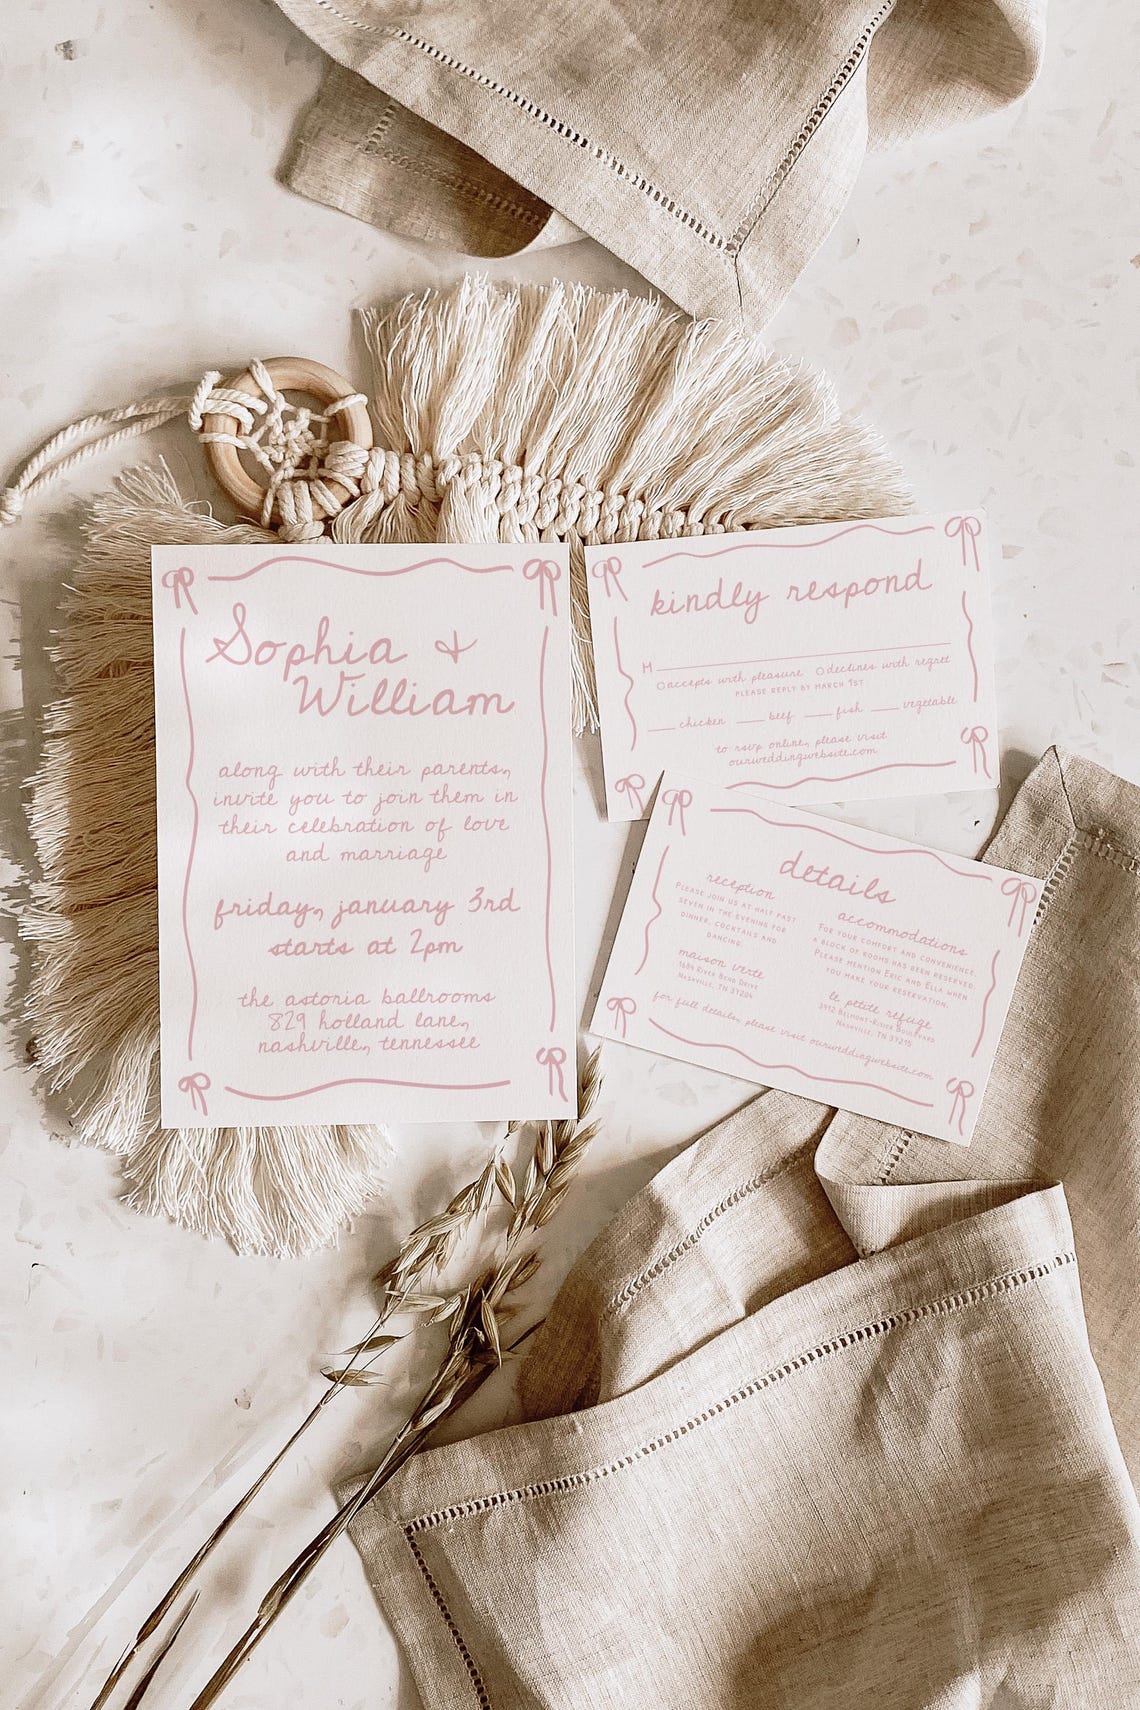 Sophia &
William
along with their parents,
invite you to join them in
their celebration of love
and marriage
friday, january 3rd
starts at 2pm
the astoria ballrooms
829 holland lane,
nashville, tennessee
kindly respond
M
accepts with pleasure declines with regret
PLEASE REPLY BY MARCH 1ST
chicken beef fish vegetable
to rsvp online, please visit
ourweddingwebsite.com
details
reception
PLEASE JOIN US AT HALF PAST
SEVEN IN THE EVENING FOR
DINNER, COCKTAILS AND
DANCING.
maison verte
1684 RIVER BEND DRIVE
NASHVILLE, TN 37204
accommodations
FOR YOUR COMFORT AND CONVENIENCE,
A BLOCK OF ROOMS HAS BEEN RESERVED.
PLEASE MENTION ERIC AND ELLA WHEN
YOU MAKE YOUR RESERVATION.
le petite refuge
3912 BELMONT-RIVER BOULEVARD
NASHVILLE, TN 37215
for full details, please visit ourweddingwebsite.com